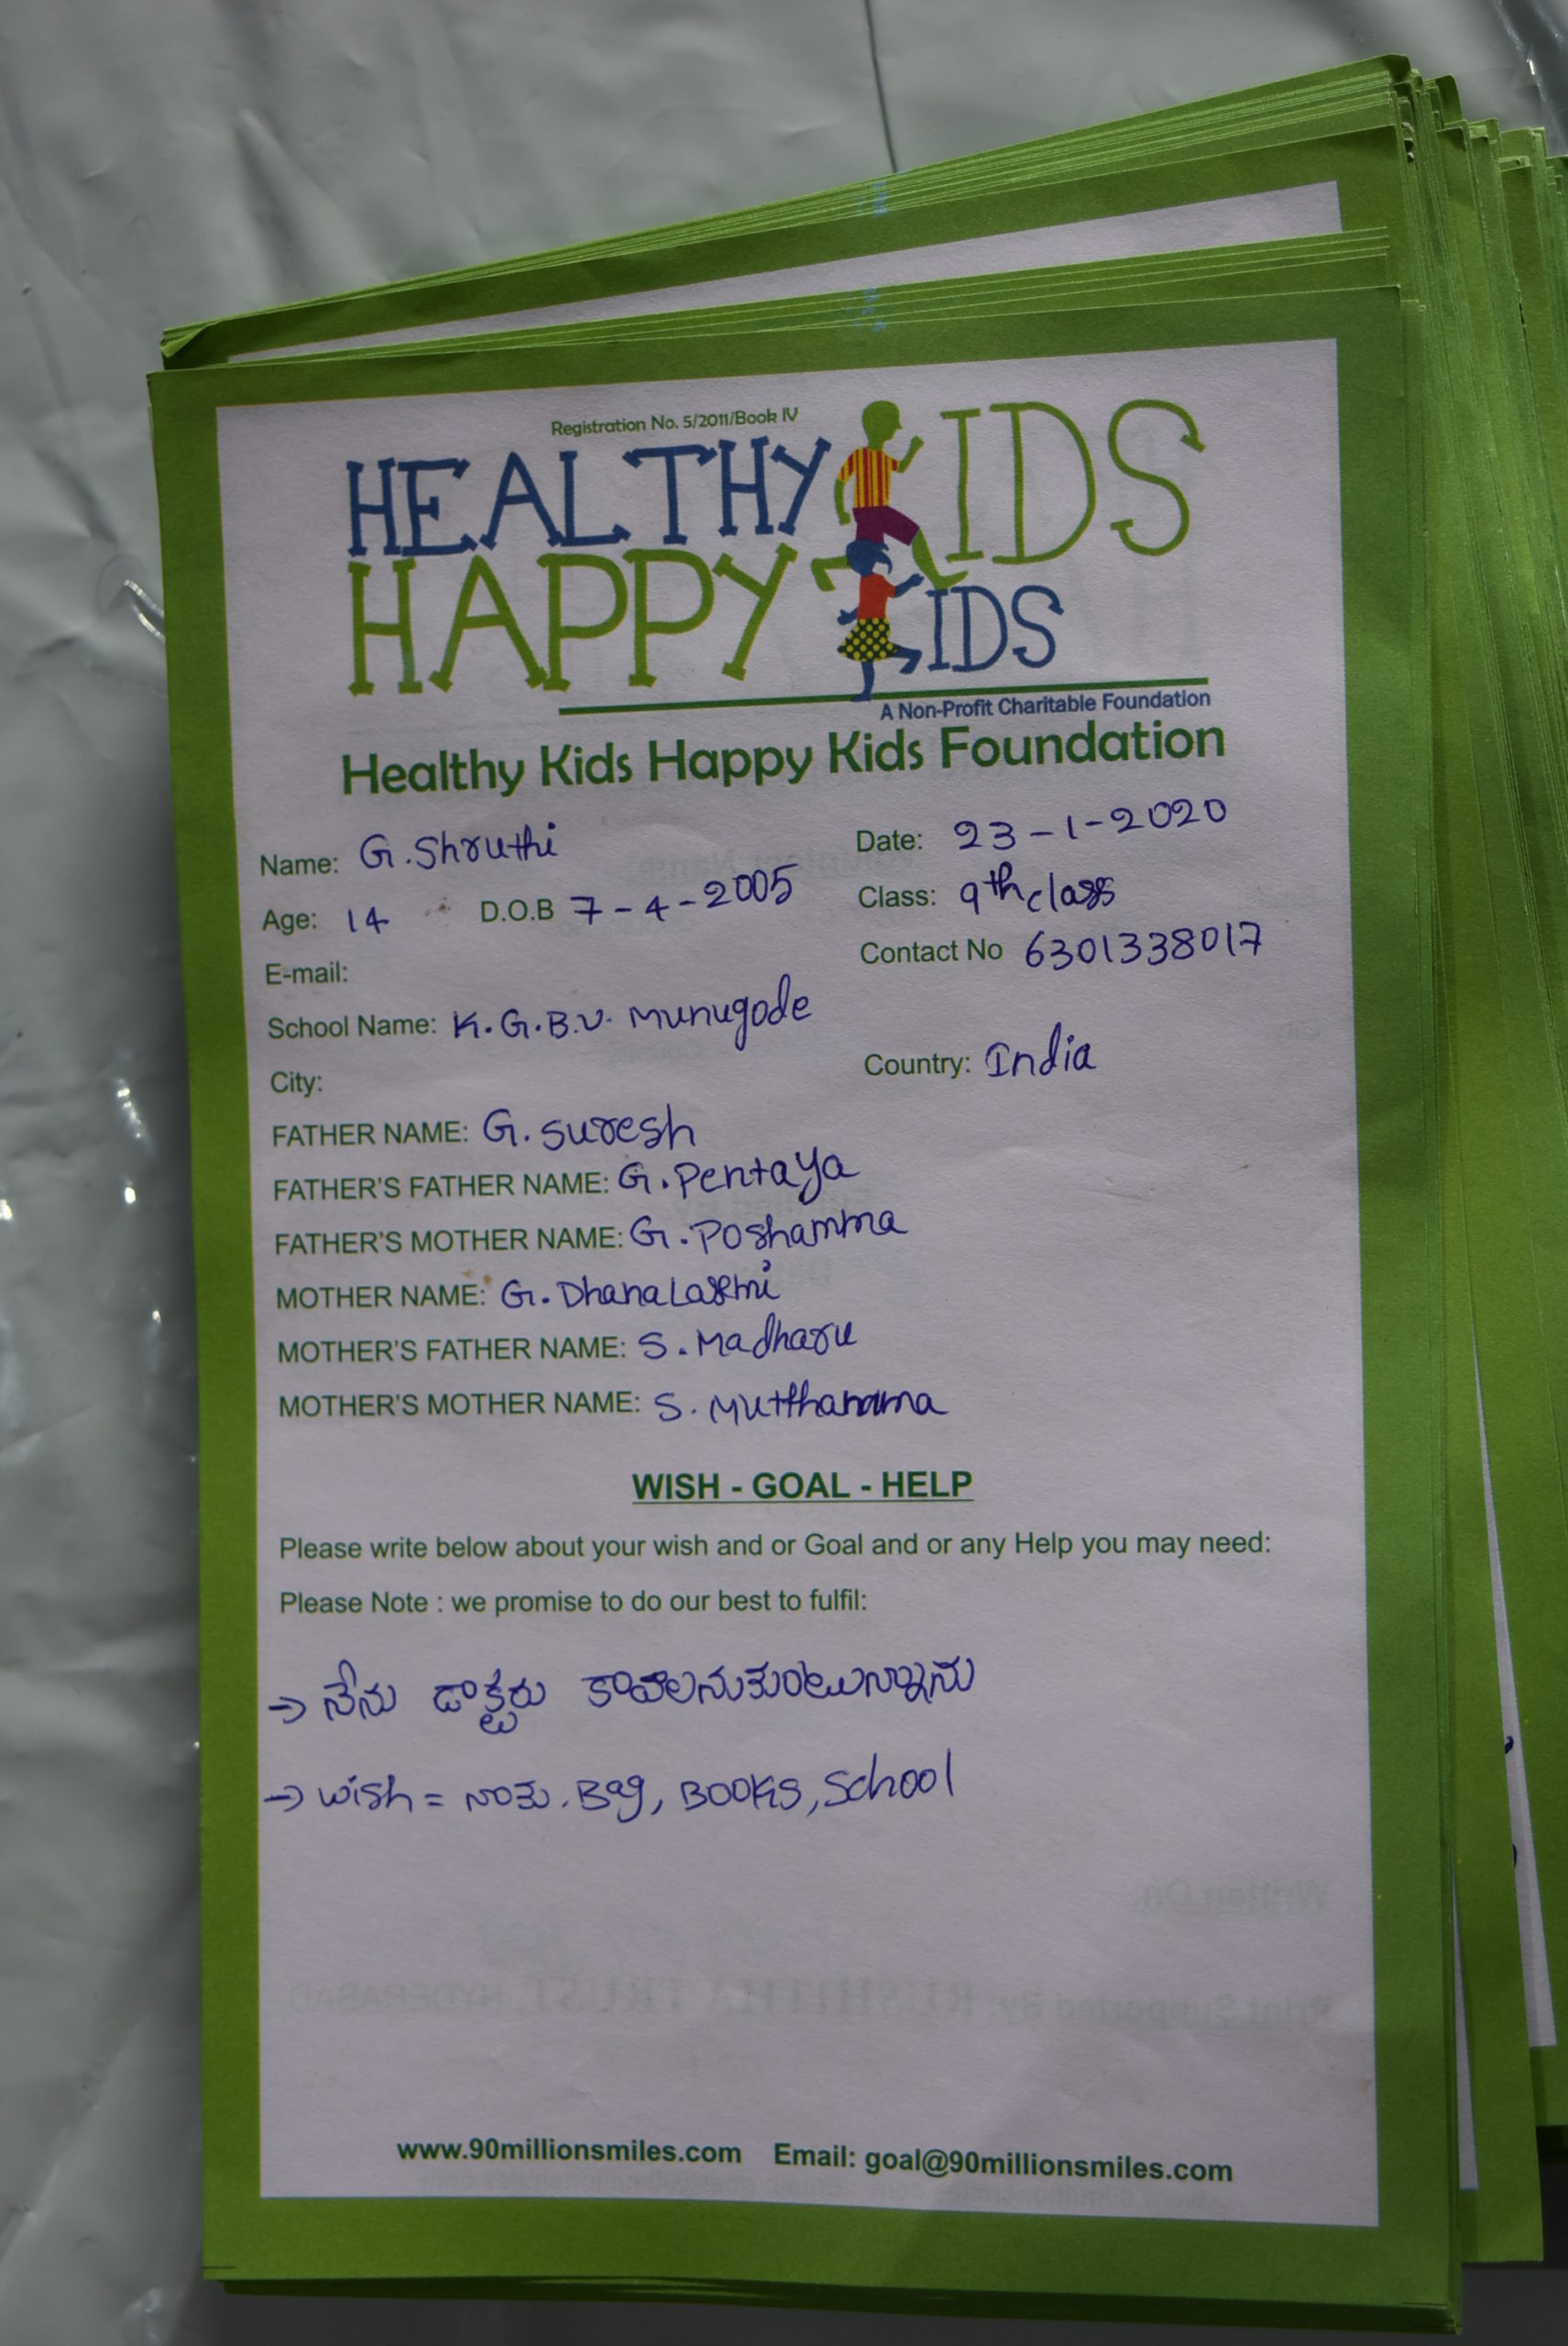 Registration No. 5/2011/Book IV
HEALTHY KIDS
HAPPY KIDS
A Non-Profit Charitable Foundation
Healthy Kids Happy Kids Foundation
Name: G.Shruthi Date: 23-1-2020
Age: 14 D.O.B 7-4-2005 Class: 9th class
E-mail: Contact No 6301338017
School Name: K.G.B.V. Munugode
City: Country: India
FATHER NAME: G. suresh
FATHER'S FATHER NAME: G.Pentaya
FATHER'S MOTHER NAME: G.Poshamma
MOTHER NAME: G. DhanaLaxmi
MOTHER'S FATHER NAME: S. Madharu
MOTHER'S MOTHER NAME: S. Mutthamma
WISH - GOAL - HELP
Please write below about your wish and or Goal and or any Help you may need:
Please Note : we promise to do our best to fulfil:
→ నేను డాక్టరు కావాలనుకుంటున్నాను
→ wish = నాకు. Bag, BOOKS, School
www.90millionsmiles.com Email: goal@90millionsmiles.com